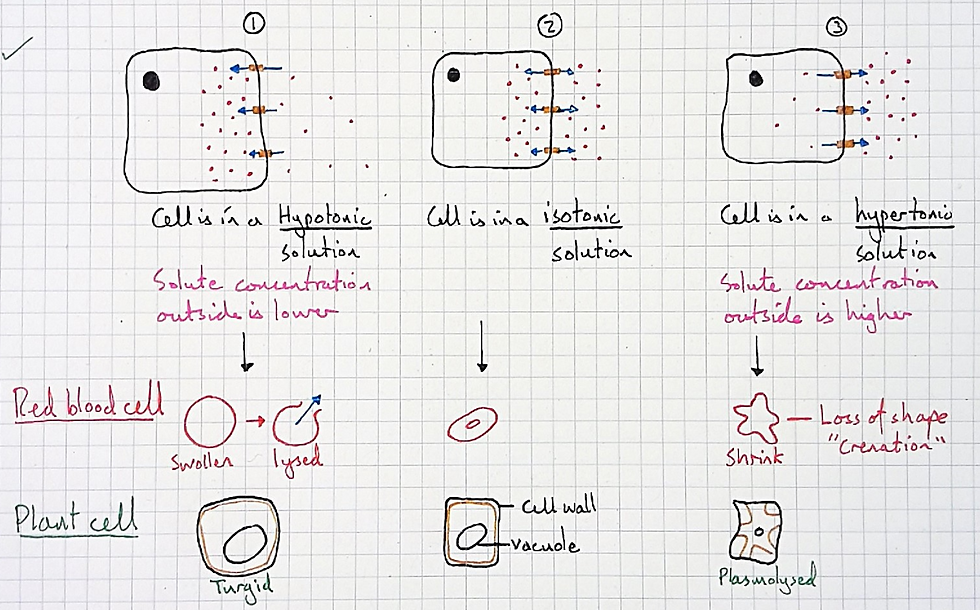 1
2
3
Cell is in a Hypotonic
solution
Solute concentration
outside is lower
Cell is in a isotonic
solution
Cell is in a hypertonic
solution
Solute concentration
outside is higher
Red blood cell
Swollen
lysed
Shrink
Loss of shape
"Crenation"
Plant cell
Turgid
Cell wall
Vacuole
Plasmolysed